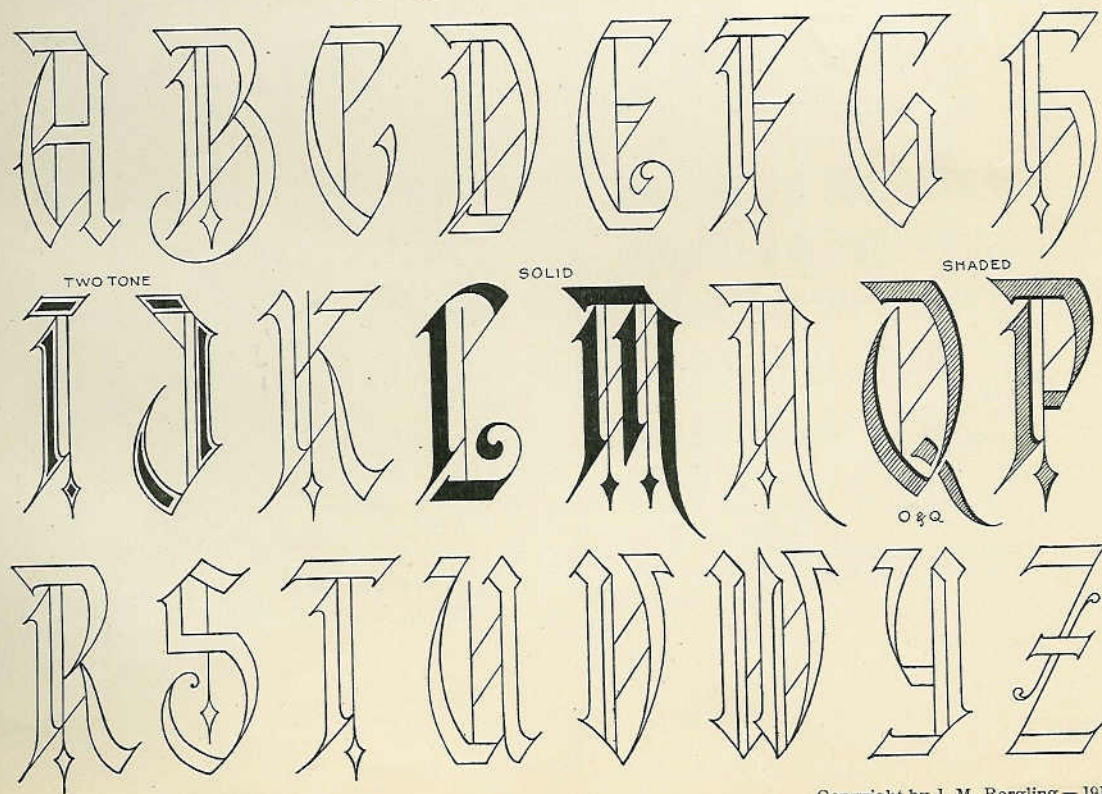 A B C D E F G H
TWO TONE SOLID SHADED
I J K L M N Q P
O & Q
R S T U V W Y Z
Copyright by J. M. Bergling — 191